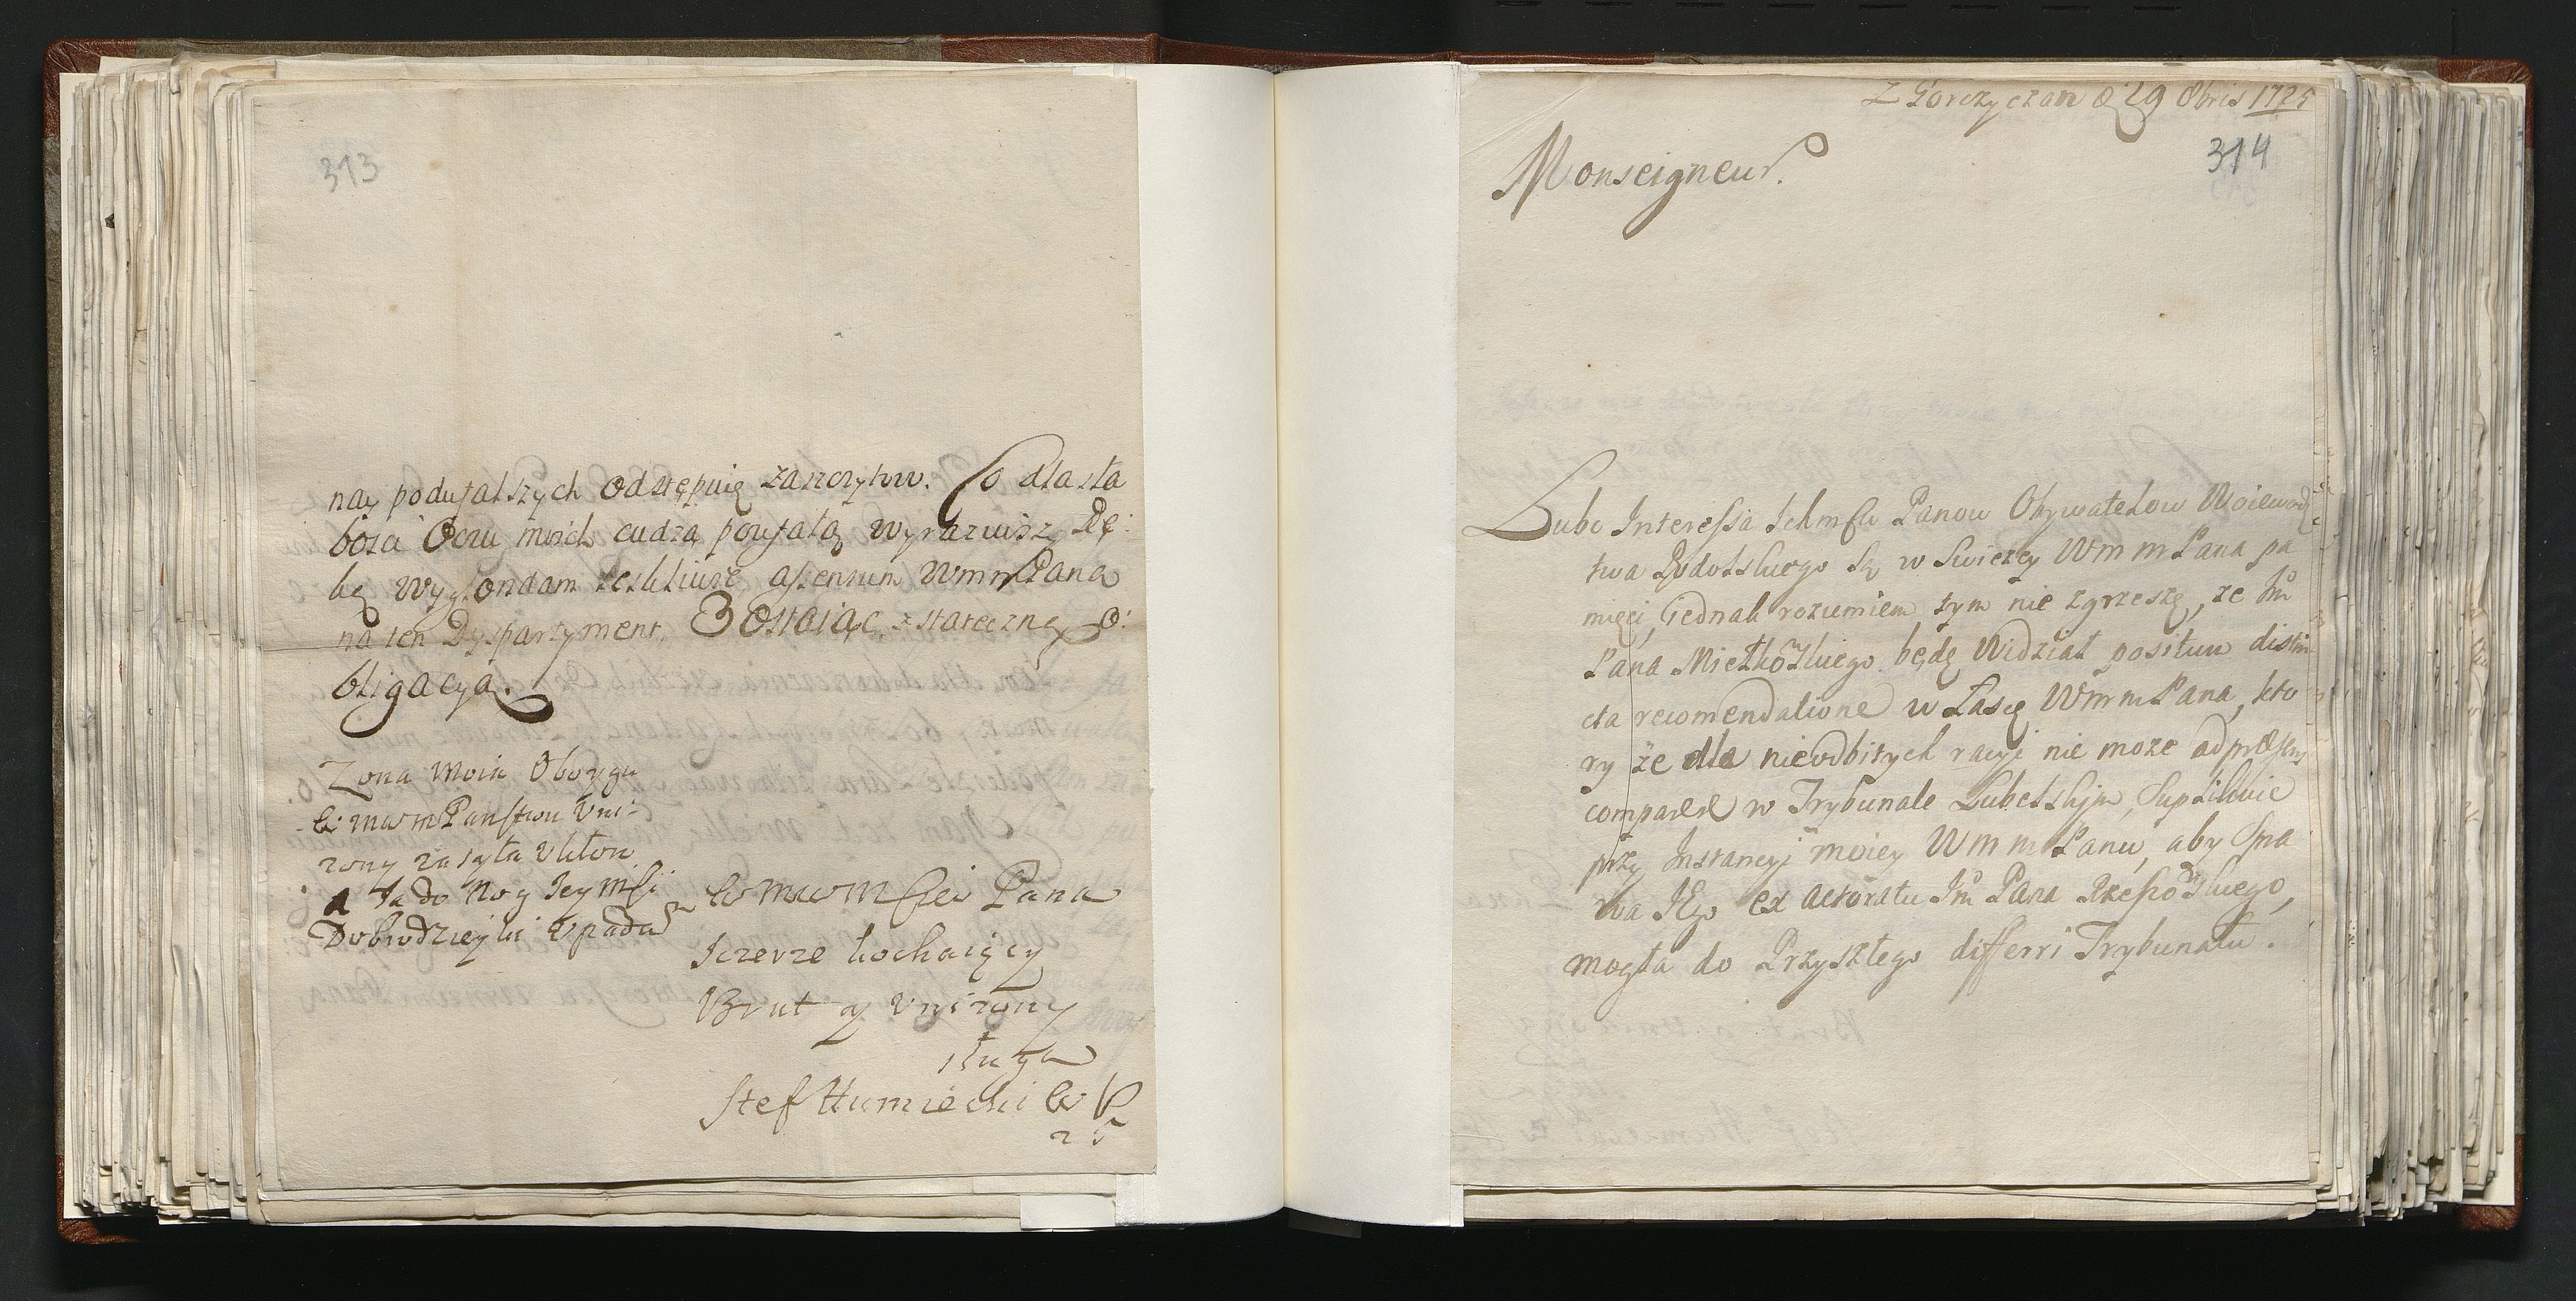 313
nay podufalszych odstępuię zaszczytow. Co dla sła
bosci Oczu moich cudzą poufałą wyraziwszy Rę:
ką wyglondam
na ten Dyspartyment, Zostaiąc z stateczną o:
bligacyą.
Zona moia Oboygu
WmwmPanstwu Vni:
zony zasyła Vkłon
a Ja do Nog Jey Mſci
Dobrodzieyki Vpadam
WmwMſci Pana
Sczerze kochaiący
Brat y Vnizony
sługa
Stef Humiecki W P
Z Gorczyczan d 29 8bris 1725
314
Monseigneur.
Lubo Intereſſa Ichmſciw Panow Obywatelow Woiewodz
twa Podolskiego Są w Swiezey WmmPana pa
mięci, iednak rozumiem tym nie zgrzeszę, ze Jm̃
Pana będę Widział positum distin
cta recomendatione w Łasce WmmPana, kto
ry że dla nieodbitych racyi nie moze ad præsens
comparere w Trybunale Lubelskim, Suplikuie
przy Instancyi moiey WmmPanu, aby Spra
wa Jego ex actoratu Jm̃ Pana
mogła do Przyszłego differri Trybunału.